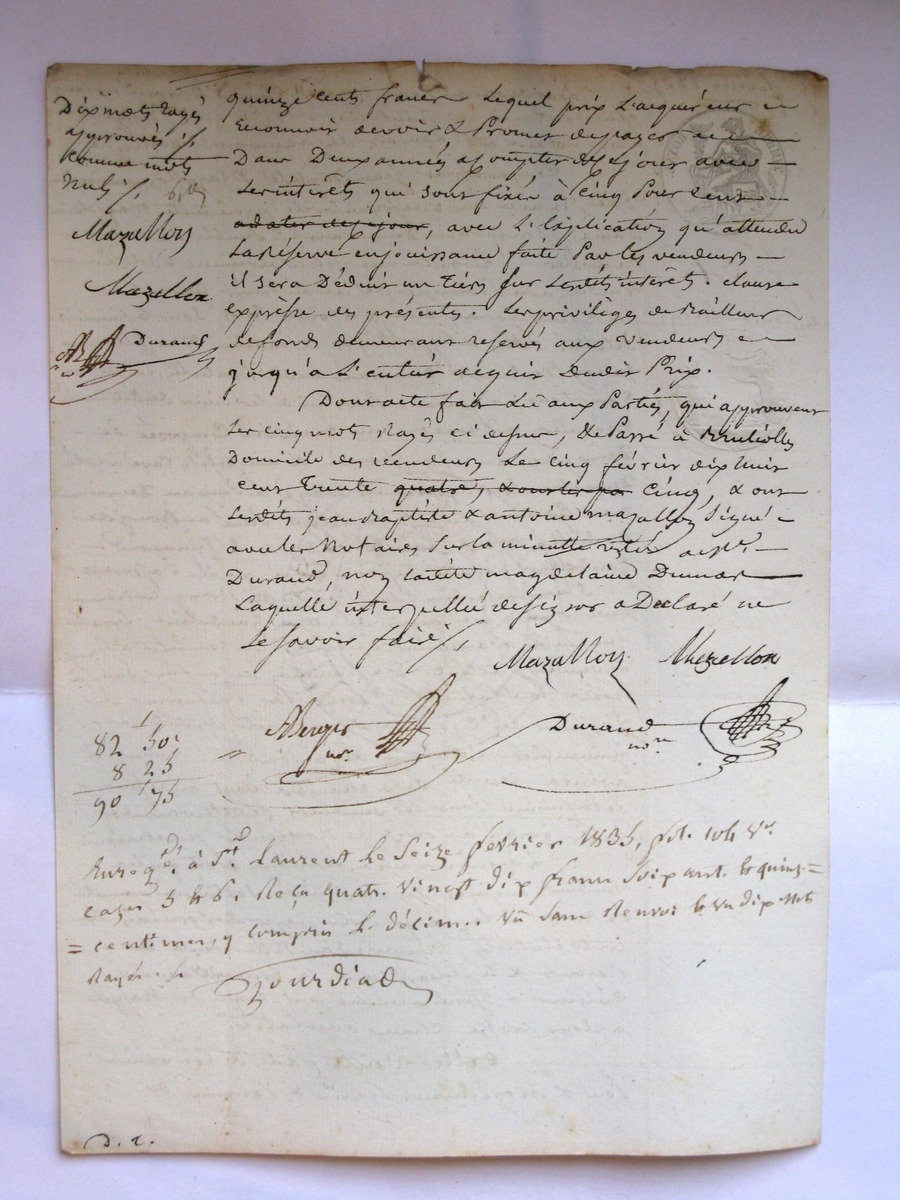 Dix mots rayés
approuvés ./.
comme mots
nuls ./.
Mazellon
Mazellon
Durand
quinze cents francs lequel prix l'acquéreur
reconnoit devoir & Promet de payer
Dans Deux années a compter de ce jour avec
les intérêts qui sont fixés à cinq Pour cent
a dater de ce jour, avec l'Explication qu'attendu
la réserve en jouissance faite Par les vendeurs
il sera Déduit un tiers sur lesdits intérêt. clause
expresse des présentes. Les privilèges de Bailleur
de fonds demeurant reservés aux vendeurs
jusqu'a l'entier acquit dudit Prix.
Dont acte fait Lu aux Parties, qui approuvent
les cinq mots Rayés ci dessus, & Passé à
Domicile des vendeurs Le cinq février dix huit
cent Trente quatre, cinq, & ont
lesdits jean baptiste & antoine mazallon Signé
avec les Notaires Sur la minutte restée a Me.
Durand, non ladite magdelaine Dumas
Laquelle interpellée de signer a Déclaré ne
le savoir faire ./.
Mazallon Mazellon
Berger Durand
nre. nore
82 50
8 25
90 75
Enregé. à St. Laurent le Seize fevrier 1835, fol. 104 Vo.
cases 5 & 6. Reçu quatre vingt dix francs Soixante & quinze
centimes, y compris le décime. Vu Sans Renvoi & vu dix Mots
Rayés.
D. 2.